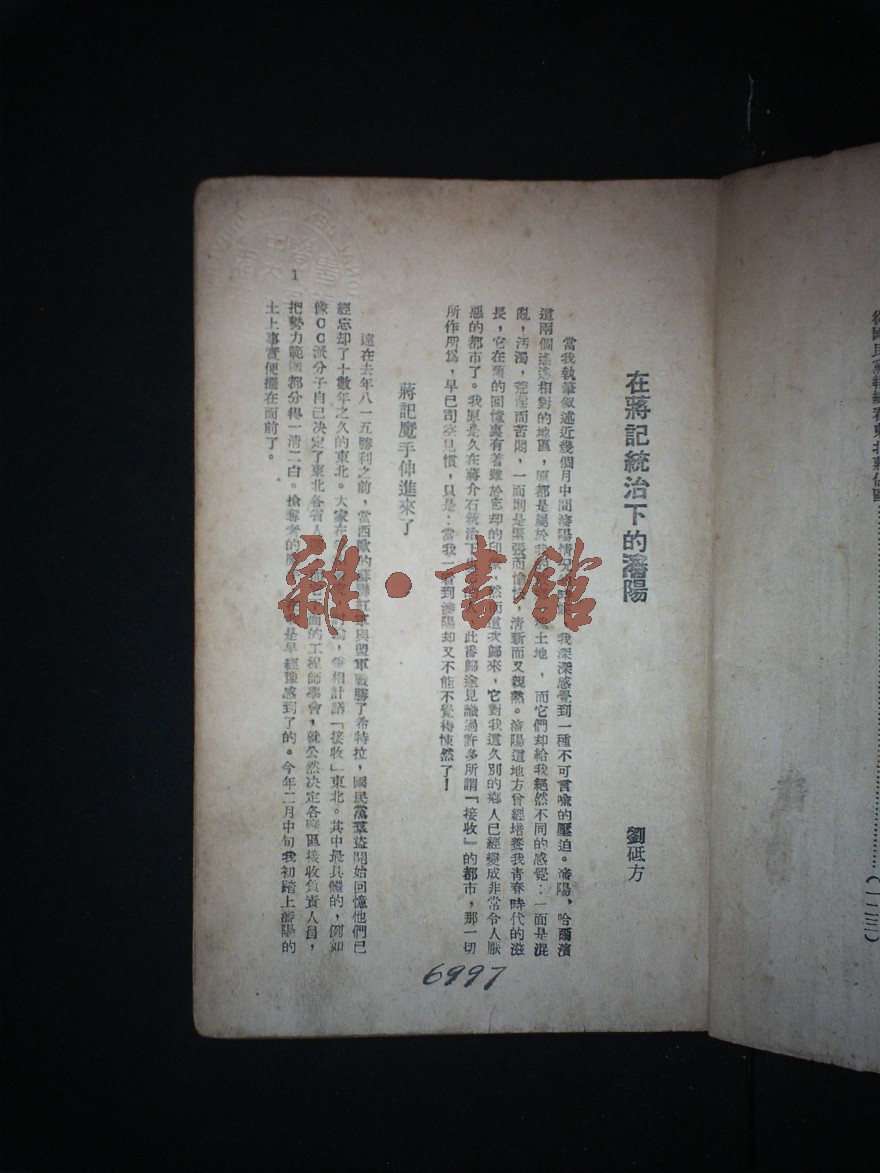 從國民黨報紙看東北蔣佔區……………………(一二三)
在蔣記統治下的瀋陽
劉砥方
當我執筆叙述近幾個月中間瀋陽情況
我深深感覺到一種不可言喻的壓迫。瀋陽,哈爾濱
這兩個遙遙相對的地區,原都是屬於我
土地,而它們却給我絕然不同的感覺:一面是混
亂,汚濁,荒淫而苦悶,一面則是緊張而愉快,清新而又親熱。瀋陽這地方曾經培養我青春時代的滋
長,它在舊的回憶裏有著難於忘却的印象,然而這次歸來,它對我這久別的鄉人已經變成非常令人厭
惡的都市了。我原是久在蔣介石統治下
此番歸途見識過許多所謂「接收」的都市,那一切
所作所爲,早已司空見慣,只是:當我一看到瀋陽却又不能不覺得悚然了!
蔣記魔手伸進來了
遠在去年八一五勝利之前,當西歐的蘇聯紅軍與盟軍戰勝了希特拉,國民黨羣盜開始回憶他們已
經忘却了十數年之久的東北。大家在
爭相計議「接收」東北。其中最具體的,例如
像CC派分子自己决定了東北各省人
面的工程師學會,就公然决定各礦區接收負責人員,
把勢力範圍都分得一清二白。搶奪者的
是早經豫感到了的。今年二月中旬我初踏上瀋陽的
土上事實便擺在面前了。
1
6997
雜·書館